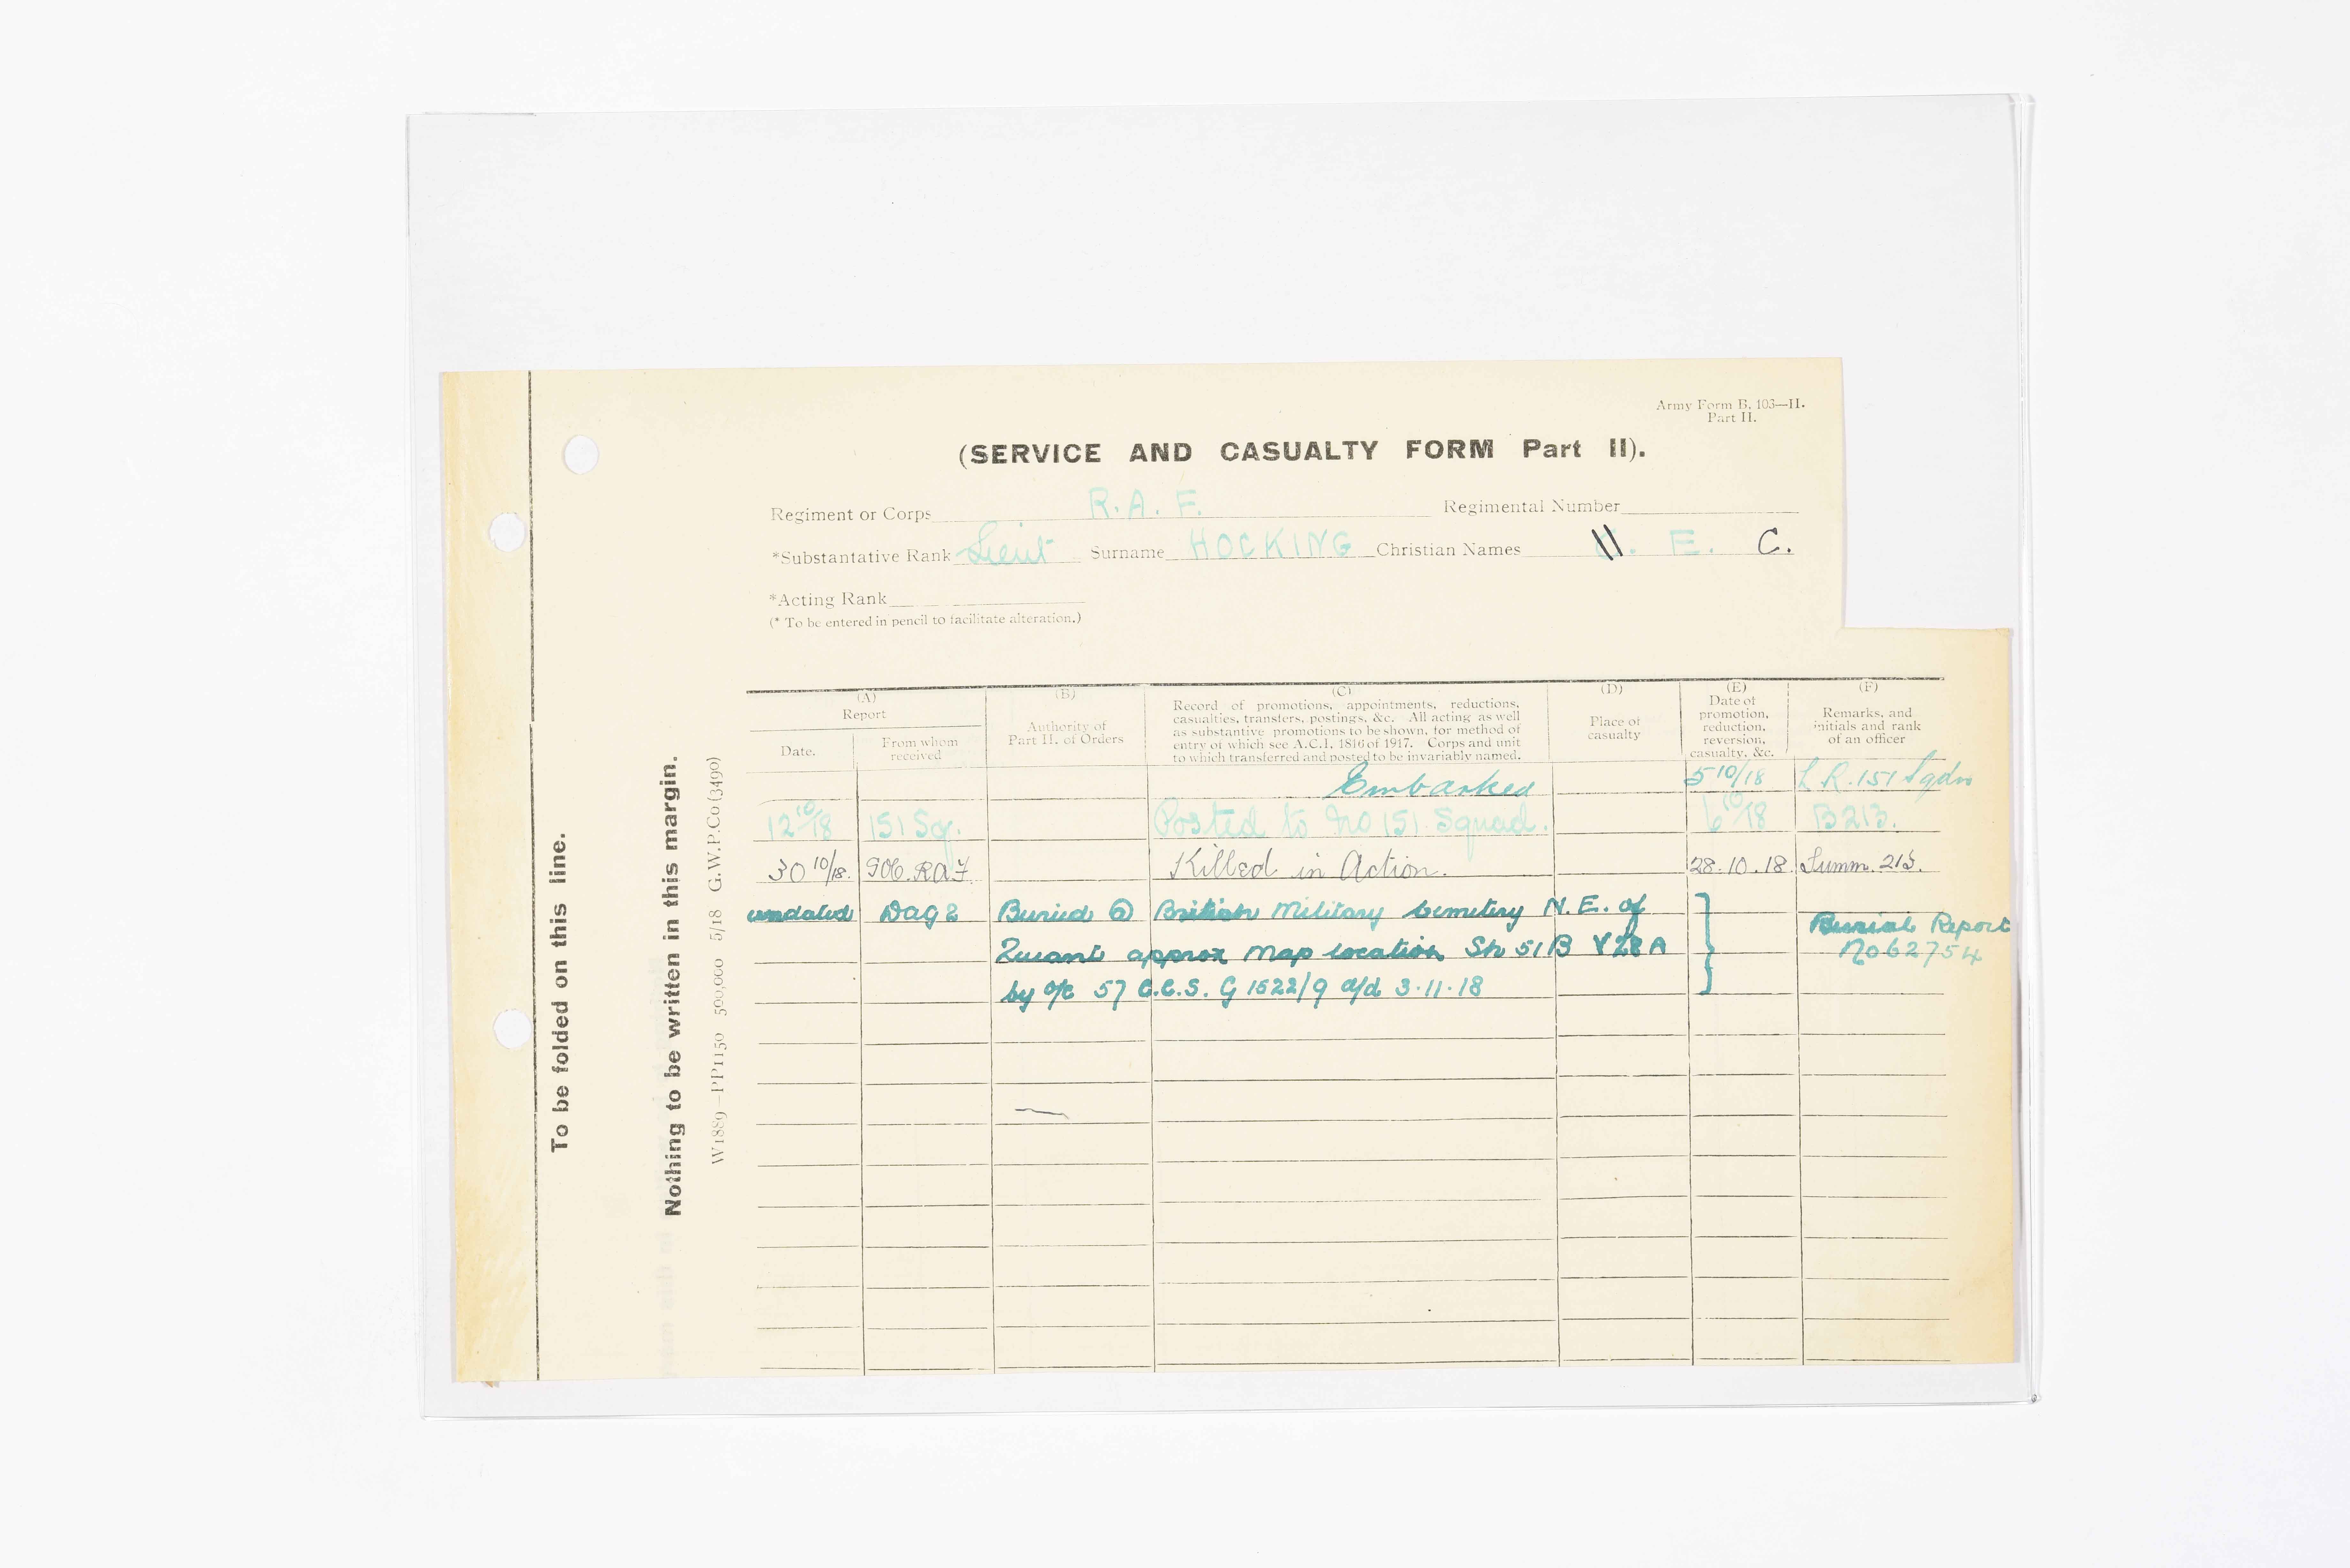 Army Form B. 103—II.
Part II.
(SERVICE AND CASUALTY FORM Part II).
Regiment or Corps R.A.F. Regimental Number
*Substantative Rank Lieut Surname HOCKING Christian Names E. C.
*Acting Rank
(* To be entered in pencil to facilitate alteration.)
To be folded on this line.
Nothing to be written in this margin.
W1889—PP1150 500,000 5/18 G.W.P.Co (3490)
(A)
Report
Date.
From whom
received
(B)
Authority of
Part II. of Orders
(C)
Record of promotions, appointments, reductions,
casualties, transfers, postings, &c. All acting as well
as substantive promotions to be shown, for method of
entry of which see A.C.I. 1816 of 1917. Corps and unit
to which transferred and posted to be invariably named.
(D)
Place of
casualty
(E)
Date of
promotion,
reduction,
reversion,
casualty, &c.
(F)
Remarks, and
initials and rank
of an officer
Embarked 5 10/18 L R. 151 Sqdn
12 10/18 151 Sq. Posted to No 151 Squad. 6 10/18 B213.
30 10/18. GOC. RAF. Killed in Action. 28.10.18. Summ. 213.
undated DAG 2 Buried @ British Military Cemetery N.E. of
Queant approx Map location Sh 51B V28A
by o/c 57 C.C.S. G 1522/9 d/d 3.11.18
Burial Report
No62754